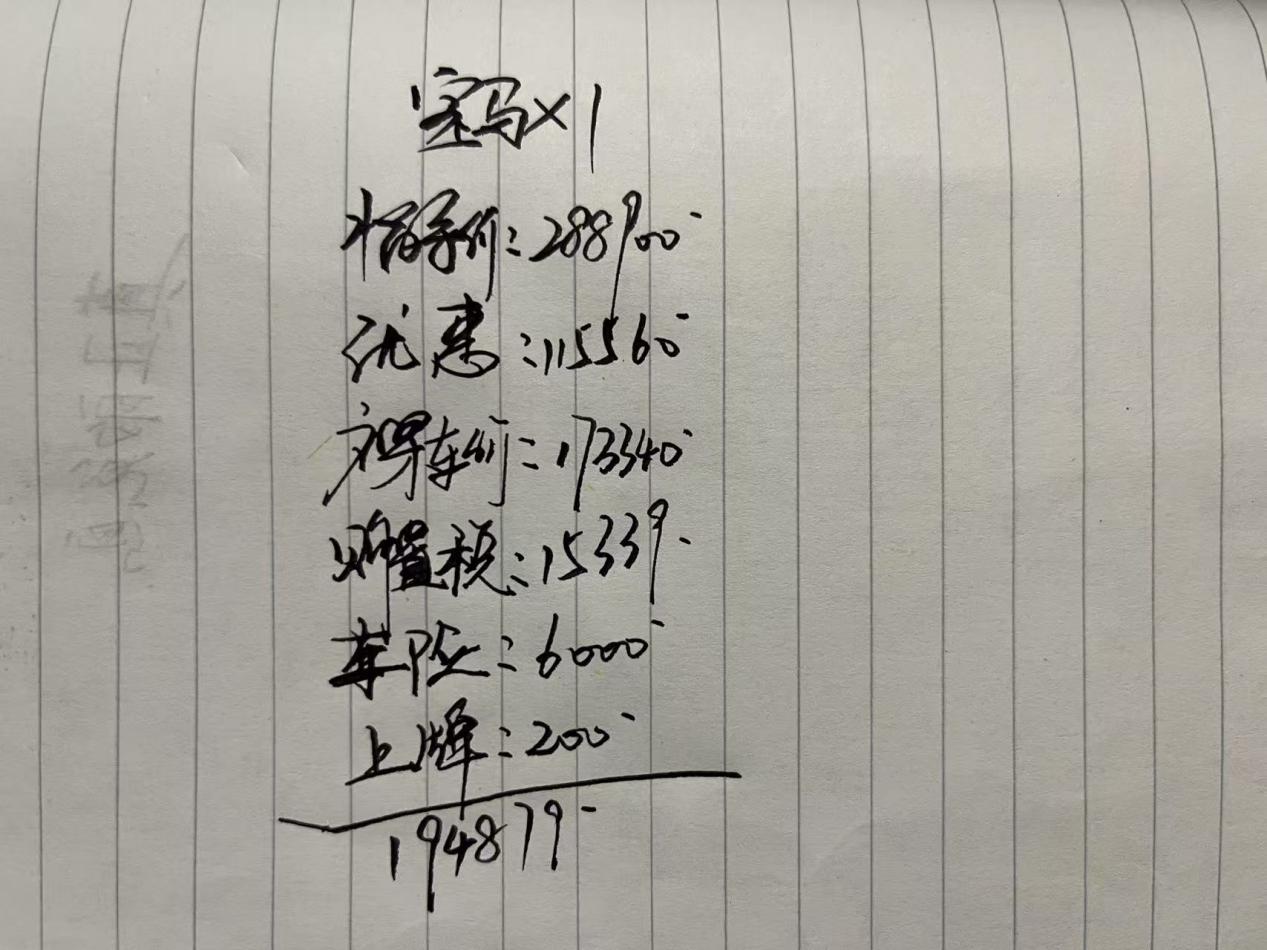 宝马X1
指导价:288900
优惠:115560
裸车价:173340
购置税:15339
车险:6000
上牌:200
194879